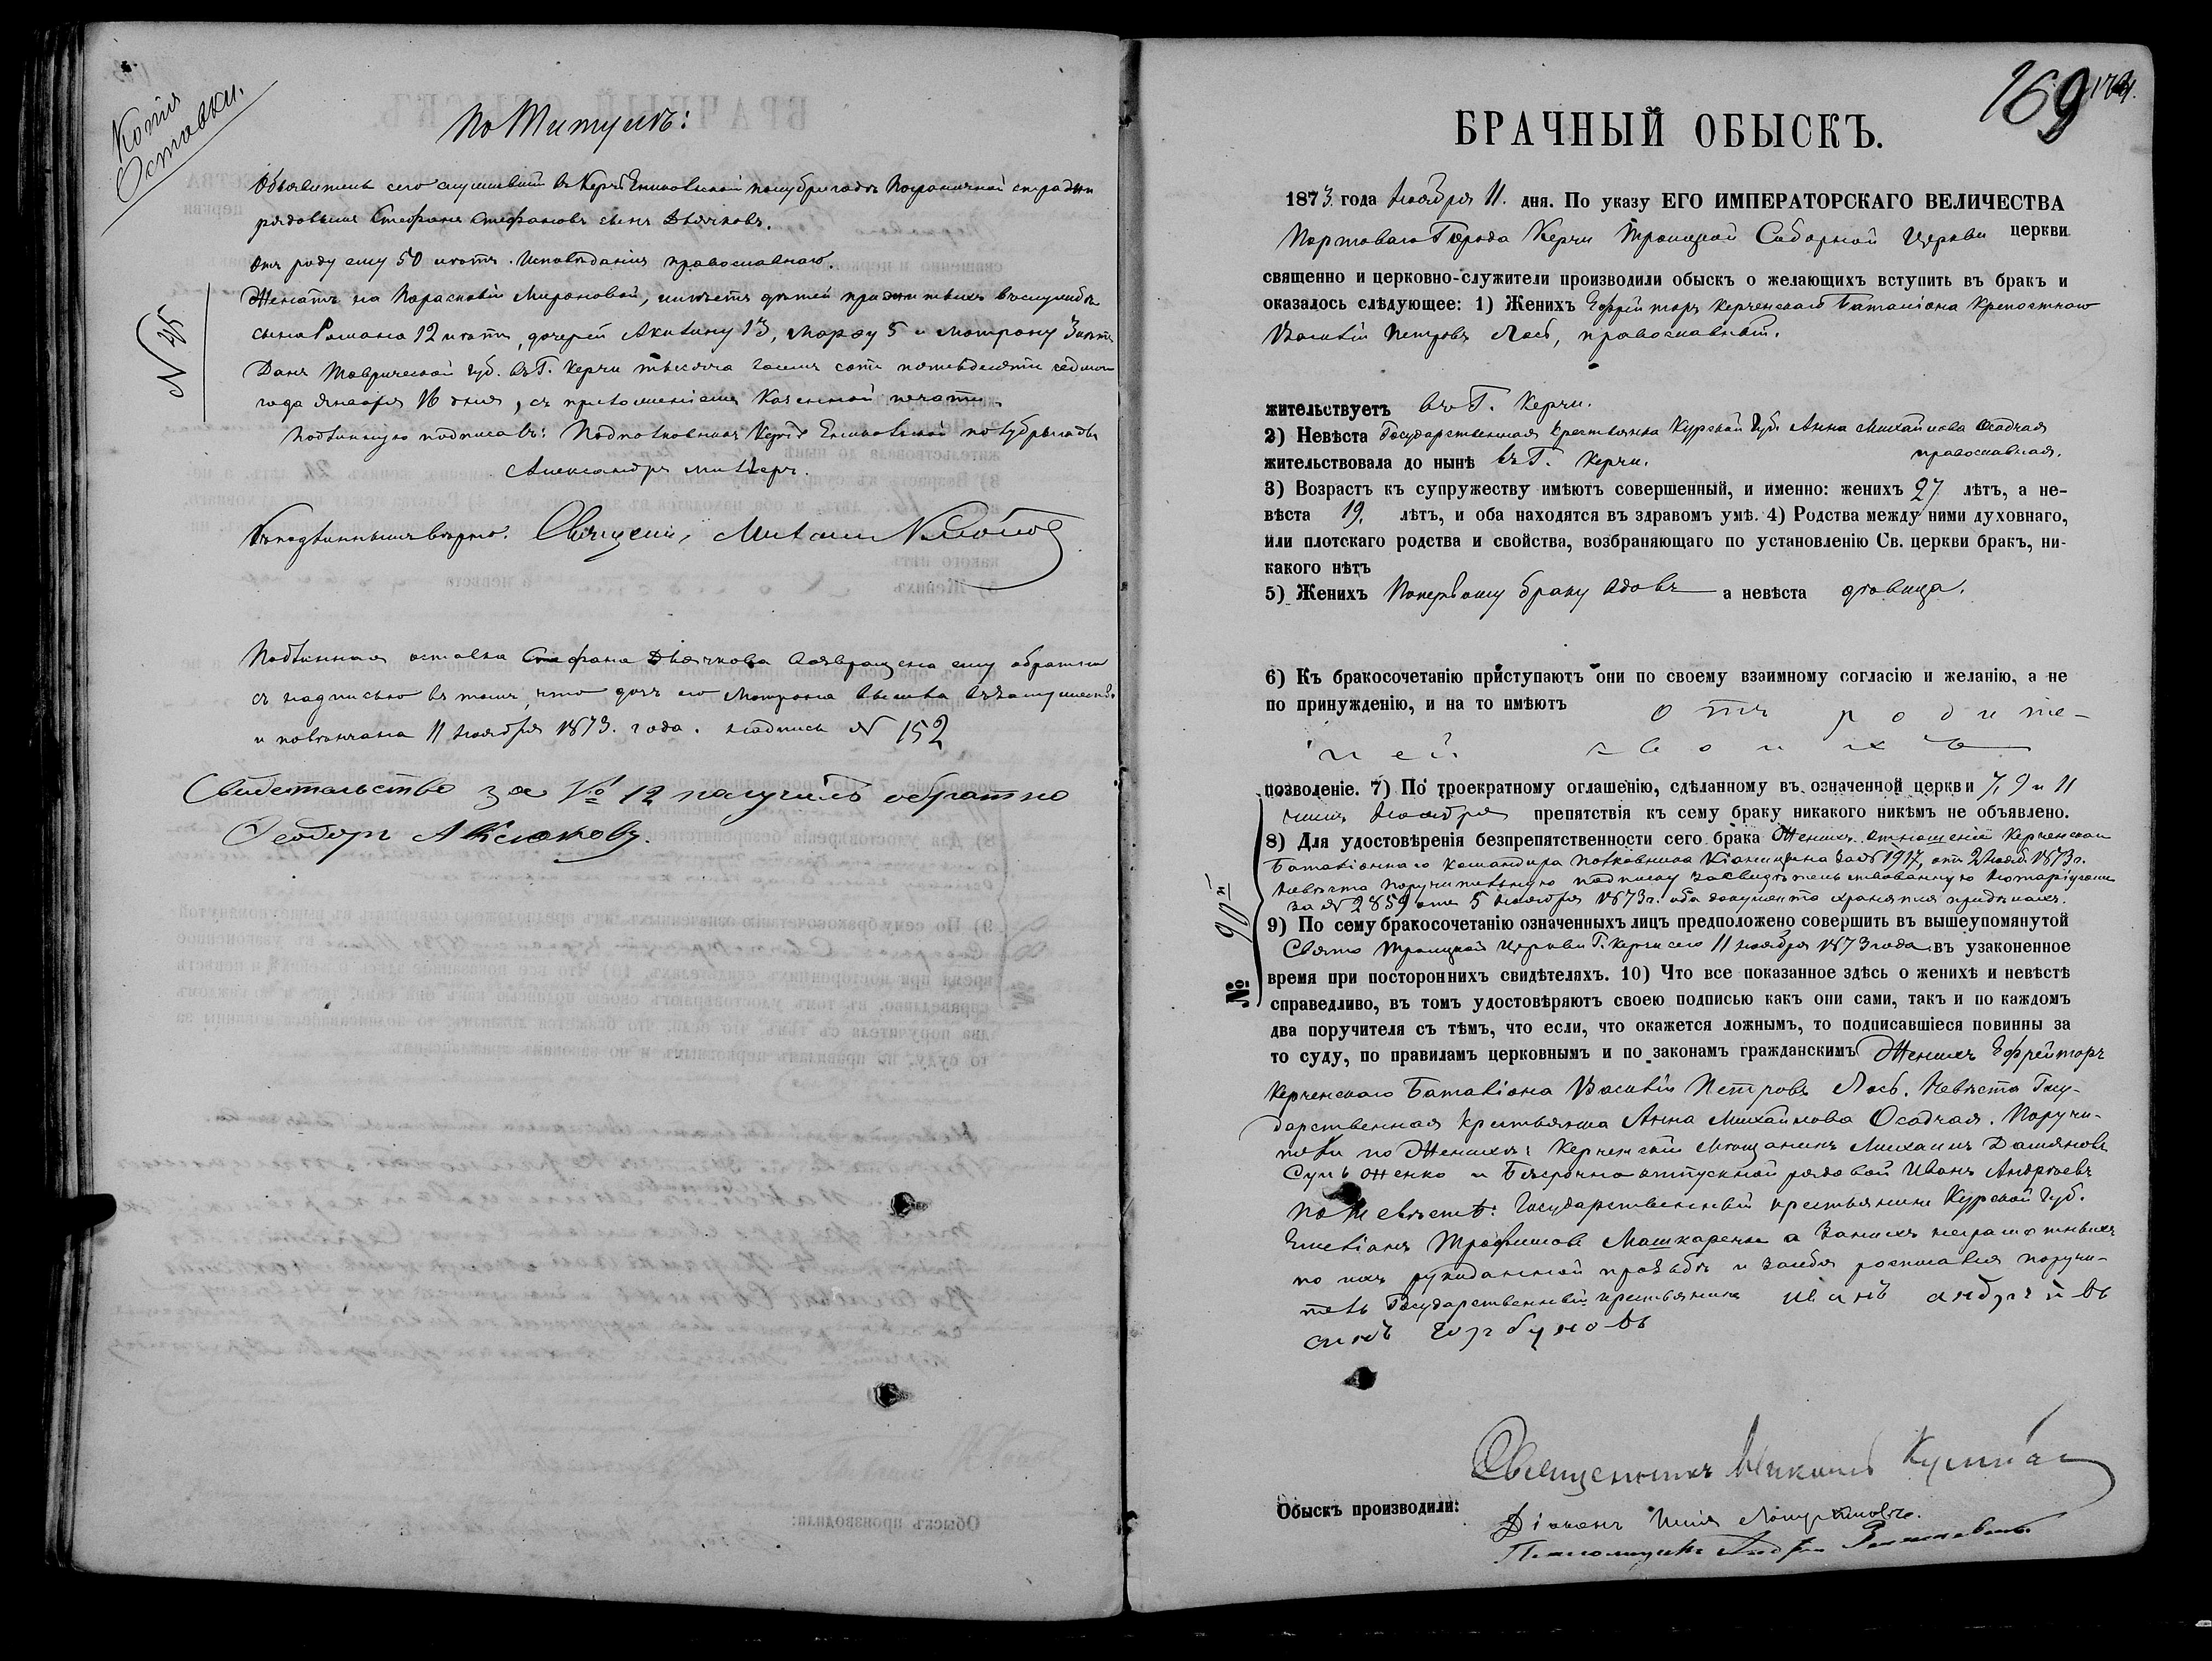 Копія
Оставки.
По Титулѣ:
Объявитель сего служившій въ Керчь Ениковской полубригадѣ Пограничной стражи
рядовымъ Стефанъ Стефановъ сынъ Дьячковъ.
Отъ роду ему 50 лѣтъ. Исповѣданія православнаго.
№ 45
Женатъ на Параскевіи Мироновой, имѣетъ дѣтей прижитыхъ въ службѣ
сына Романа 12 лѣтъ, дочерей Акилину 13, Марфу 5 и Матрону 3 лѣтъ
Данъ Таврической губ. въ Г. Керчи тысяча восемь сотъ пятьдесятъ седьмаго
года Января 16 дня, съ приложеніемъ Казенной печати.
Подлинную подписалъ: Подполковникъ Керчь Ениковской полубригады
Александръ Миллеръ.
Съ подлиннымъ вѣрно: Священ.
Подлинная оставка Стефана Дьячкова возвращена ему обратно
съ надписью въ томъ, что дочь его Матрона вышла въ замужество
и повѣнчана 11 Ноября 1873. года. надпись № 152
Свидетельство за № 12 получилъ обратно
Феодоръ
169
БРАЧНЫЙ ОБЫСКЪ.
1873 года Ноября 11. дня. По указу ЕГО ИМПЕРАТОРСКАГО ВЕЛИЧЕСТВА
Портоваго Города Керчи Троицкой Соборной Церкви церкви
священно и церковно-служители производили обыскъ о желающихъ вступить въ бракъ и
оказалось слѣдующее: 1) Женихъ Ефрейторъ Керченскаго Баталіона Крепостнаго
Василій Петровъ Лось, православный.
жительствуетъ въ Г. Керчи.
2) Невѣста Государственная крестьянка Курской Губ. Анна Михайлова Осадчая
православная.
жительствовала до нынѣ въ Г. Керчи.
3) Возрастъ къ супружеству имѣютъ совершенный, и именно: женихъ 27 лѣтъ, а не-
вѣста 19. лѣтъ, и оба находятся въ здравомъ умѣ. 4) Родства между ними духовнаго,
или плотскаго родства и свойства, возбраняющаго по установленію Св. церкви бракъ, ни-
какого нѣтъ
5) Женихъ По первому браку вдовъ а невѣста дѣвица.
6) Къ бракосочетанію приступаютъ они по своему взаимному согласію и желанію, а не
по принужденію, и на то имѣютъ отъ родите-
лей своихъ
позволеніе. 7) По троекратному оглашенію, сдѣланному въ означенной церкви 7, 9 и 11
числъ Ноября препятствія къ сему браку никакого никѣмъ не объявлено.
8) Для удостовѣренія безпрепятственности сего брака Женихъ отношеніе Керченскаго
Баталіоннаго Командира Полковника за № 1917, отъ 2 Нояб. 1873 г.
Невѣста поручительную подписку засвидѣтельствованную Нотаріусомъ
за № 2859 отъ 5 Ноября 1873 г. оба документа хранятся при дѣлахъ.
№ 90й
9) По сему бракосочетанію означенныхъ лицъ предположено совершить въ вышеупомянутой
Свято Троицкой Церкви Г. Керчи сего 11 Ноября 1873 года въ узаконенное
время при постороннихъ свидѣтеляхъ. 10) Что все показанное здѣсь о женихѣ и невѣстѣ
справедливо, въ томъ удостовѣряютъ своею подписью какъ они сами, такъ и по каждомъ
два поручителя съ тѣмъ, что если, что окажется ложнымъ, то подписавшіеся повинны за
то суду, по правиламъ церковнымъ и по законамъ гражданскимъ Женихъ Ефрейторъ
Керченскаго Баталіона Василій Петровъ Лось. Невѣста Госу-
дарственная Крестьянка Анна Михайлова Осадчая. Поручи-
тели по Женихѣ: Керченскій Мѣщанинъ Михаилъ Дамяновъ
и Безсрочно отпускной рядовой Иванъ Андреевъ
по Невѣстѣ: Государственный крестьянинъ Курской Губ.
Емеліанъ Трофимовъ а за нихъ неграмотныхъ
по ихъ рукоданной прозьбѣ и за себя росписался поручи-
тель Государственный крестьянинъ иванъ андрѣйвъ
синъ горбуновъ
Священникъ Михаилъ
Обыскъ производили:
Діаконъ Илія
Псаломщикъ Андрей